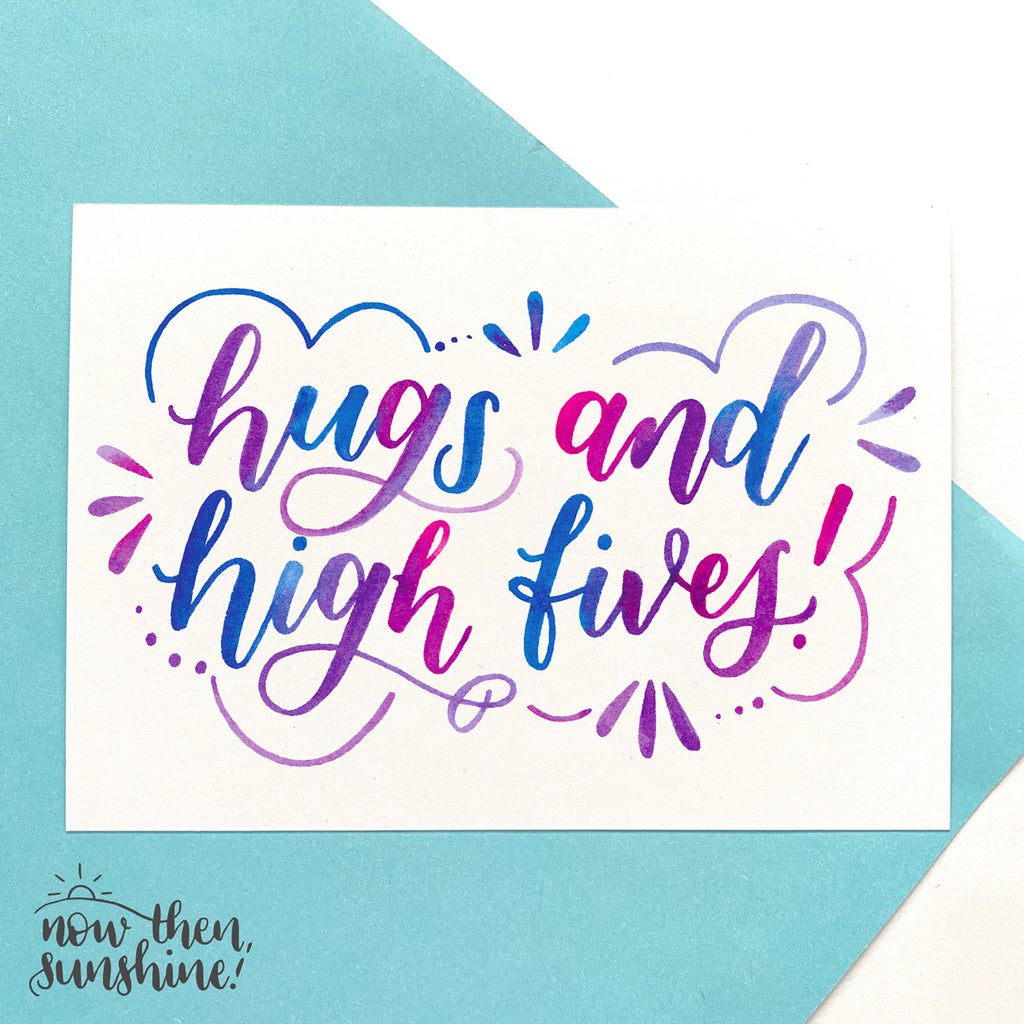 hugs and
high fives!
now then,
sunshine!